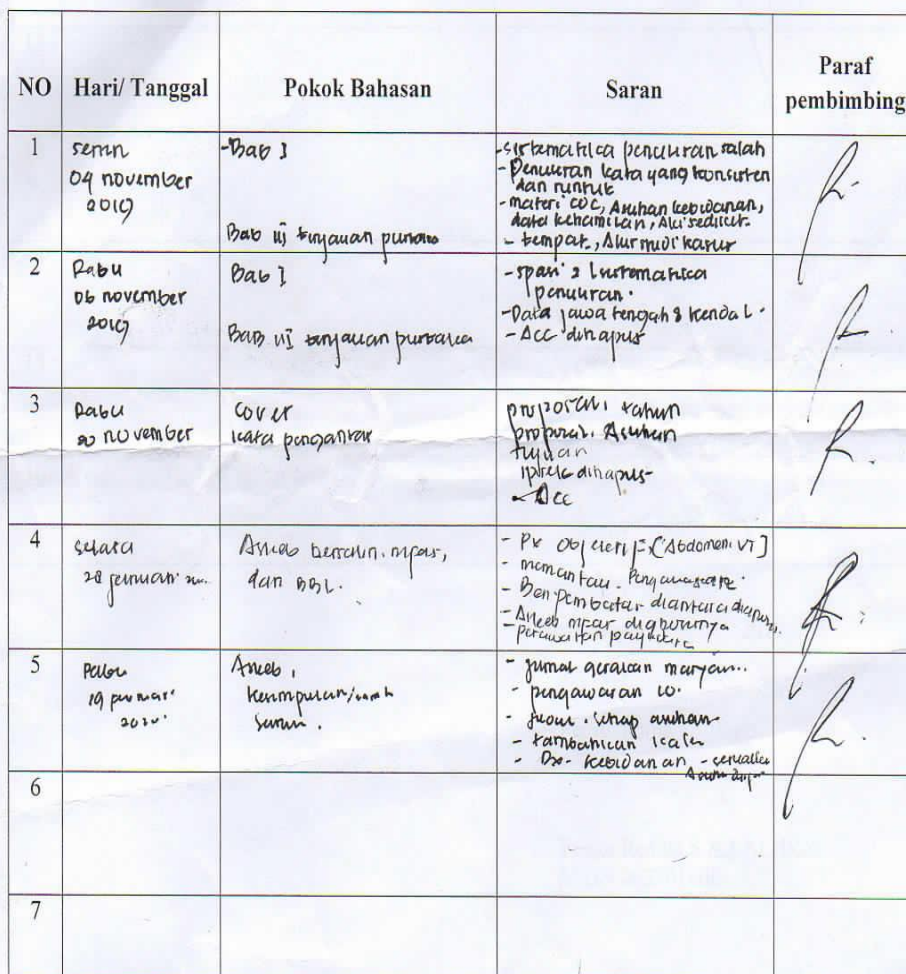 NO Hari/ Tanggal Pokok Bahasan Saran Paraf pembimbing
1
senin
04 november
2019
-Bab I
Bab II tinjauan pustaka
-sistematika penulisan salah
- Penulisan kata yang konsisten
dan runtut
-materi COC, Asuhan kebidanan,
data kehamilan,
- tempat, Alur studi kasus
2
Rabu
06 november
2019
Bab I
Bab II tinjauan pustaka
-spasi 2 sistematika
penulisan.
-Data jawa tengah & kendal.
- Acc dihapus
3
Rabu
20 november
cover
kata pengantar
proporsi tahun
proporsi Asuhan
tujuan
dihapus
- Acc
4
selasa
28 januari
Askeb bersalin. nifas,
dan BBL.
- Px objektif: (Abdomen. VT)
- memantau. Pengawasan
- Beri pembatas diantara
- Askeb nifas
perawatan payudara
5
Rabu
19
Askeb,
kesimpulan
saran.
- jurnal gerakan
- pengawasan 10.
- setiap asuhan
- tambahkan
- Dx- kebidanan -
6
7